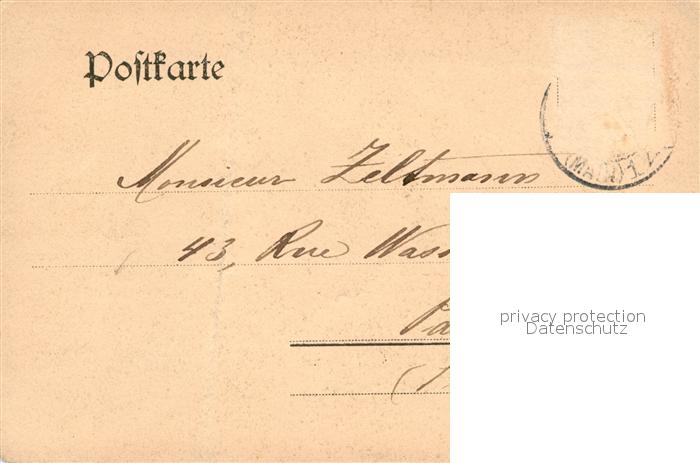 Postkarte
(MAIN) 1
Monsieur Zeltmann
43, Rue Wass
Pa
privacy protection
Datenschutz
(